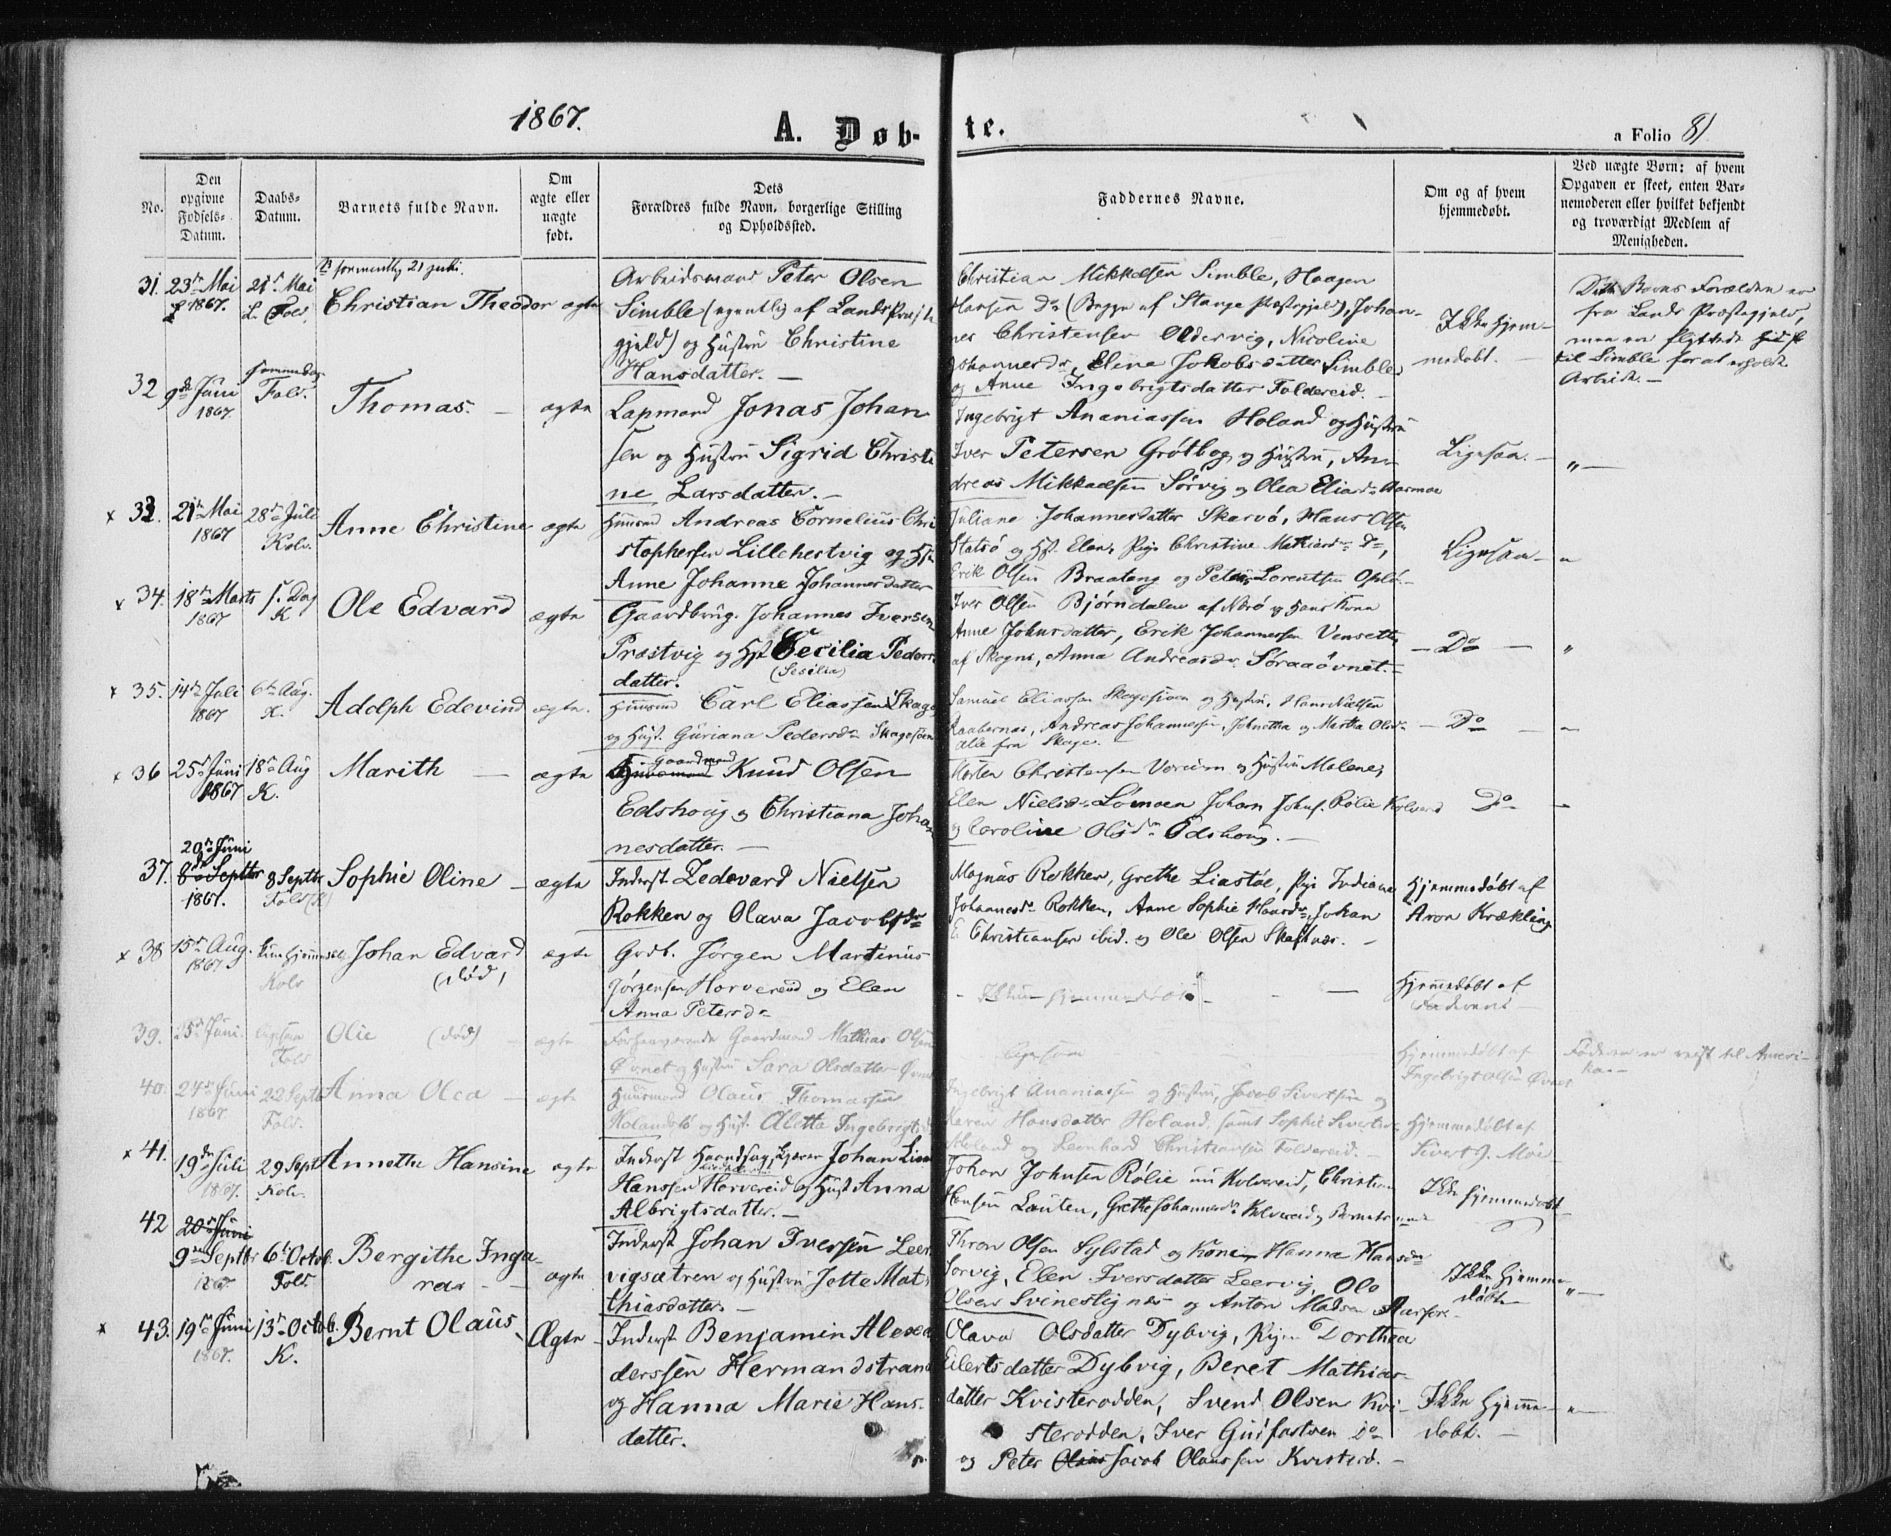 1867.
A. Døb-
te.
a Folio 81
No.
Den
opgivne
Fødsels-
Datum.
Daabs-
Datum.
Barnets fulde Navn.
Om
ægte eller
uægte
født.
Dets
Forældres fulde Navn, borgerlige Stilling
og Opholdssted.
Faddernes Navne.
Om og af hvem
hjemmedøbt.
Ved uægte Børn: af hvem
Opgaven er skeet, enten Bar-
nemoderen eller hvilket bekjendt
og troværdigt Medlem af
Menigheden.
31. 23de Mai
1867.
Christian Theodor ægte
Arbeidsmand Peter Olsen
Simble (egentlig af Lands Præste
gjeld) og Hustru Christine
Hansdatter. —
Christian Mikkelsen Simble, Haagen
Hansen Do (Begge af Stange Præstegjeld), Johan-
nes Christensen Oldervig, Nicoline
Johannesdr, Eline Jakobsdatter Simble
og Anne Ingebrigtsdatter Foldereid. —
Ikke hjem-
medøbt. —
Dette Barns Forældre er
fra Lands Præstegjeld,
men er flyttede
til Simble for at erholde
Arbeide. —
32 9de Juni
1867.
Fold.
Thomas. — ægte
Lapmand Jonas Johan
sen og Hustru Sigrid Christi
ne Larsdatter. —
Ingebrigt Ananiassen Holand og Hustru
Iver Petersen Grötbog og Hustru, An-
dreas Mikkaelsen Sörvig og Olea Eliasdr Aarmoe
Ligesaa. — " —
x 33. 21de Mai
1867
28de Juli
Kolv.
Anne Christine ægte
Huusmd Andreas Cornelius Chri
stophersen Lillehestvig og Hst
Anne Johanne Johannesdatter
Juliane Johannesdatter Skarvö, Hans Olsen
Statsö og Hst Elen, Pige Christine Mathiasdr Do,
Erik Olsen Braateng og Peter Lorentsen Oplö. —
Ligesaa — "
x 34. 18de Marts
1867
1. Dag
K
Ole Edvard ægte
Gaardbrug. Johannes Iversen
Præstvig og Hst Cecilia Peders
(Sesilia)
datter.
Iver Olsen Bjørndalen af Nærö og Hans Kone
Anne Johnsdatter, Erik Johannessen Vensett
af Skogn, Anna Andreasdr. Søraaövnet. —
— Do — "
x 35. 14de Juli
1867
6te Aug.
K.
Adolph Edevind ægte.
Huusmd Carl Eliassen Skage
og Hust. Guriana Pedersdr Skagesöen
Samuel Eliassen Skagesioen og Hustru, Hans Nielsen
Raabernes, Andreas Johannesen, Johnetha og Martha Olsdr
alle fra Skage.
— Do — "
x 36 25de Juni
1867
18de Aug
K.
Marith — ægte
Gaardmand
Huusmand Knud Olsen
Edshoug og Christiana Joha
nesdatter. —
Morten Christensen Værum og Hustru Malene,
Elen Nielsdr Lömoen Johan Johns. Rölie Kolvereid
og Caroline Olsdr Edshoug. —
Do — "
20de Juni
37. 8de Septbr
1867.
8 Septbr
Fold (K)
Sophie Oline — ægte
Inderst Zedevard Nielsen
Rokken og Olava Jacobsdr
Magnus Rokken, Grethe Liastöe, Pige Indiane
Johannesdr Rokken, Anne Sophie Hansdr, Johan
E. Christiansen ibid. og Ole Olsen Skaftnæs. —
Hjemmedøbt af
Aron Krækling
x 38 15de Aug.
1867
Kun hjemmed.
Kolv
Johan Edvard
(död)
ægte
Grdb. Jörgen Martinus
Jörgensen Horvereid og Elen
Anna Petersdr
— Ikkun hjemmedöbt — —
Hjemmedøbt af
Faderen
39. 15de Juni.
Ligesaa
Fold
Olie (död) — ægte
Forhenværende Gaardmand Mathias Olsen
Øvnet og Hustru Sara Olsdatter Øvnet
Ligesaa
Hjemmedøbt af
Ingebrigt Olsen Øvnet
Faderen er reist til Ameri-
ka. —
40. 24de Juni
1867.
22 Septb
Fold.
Anna Olea — ægte
Huusmand Olaus Thomassen
Holand og Hust. Aletta Ingebrigtsd
Ingebrigt Ananiassen og Hustru, Jacob Sivertsen og
Maren Hansdatter Holand, samt Sophie Sivertsdr
Moland og Leonhard Christiansen Foldereid. —
Hjemmedøbt af
Sivert J. Moe
x 41. 19de Juli
1867.
29 Sept
Kolv.
Annethe Hansine ægte
Inderst Haandsagskjærer Johan Lien
Hanssen Horvereid og Hust Anna
Albrigtsdatter. —
Johan Johnsen Rölie nu Kolvereid, Christian
Hansen Lauten, Grethe Johannesdr Kolvereid og Barnets
Ikke hjemmedøbt
42 20de Juni
9de Septbr
1867.
6te Octob.
Fold.
Bergithe Inga-
rea — — ægte
Inderst Johan Iversen Leer
vigsætren og Hustru Jette Mat
thiasdatter. —
Thron Olsen Sylstad og Kone Hanna Hansdr
Sorvig, Elen Iversdatter Leervig, Ole
Olsen Svinestignes og Anton Madsen Aarfore.
Ikke hjemme-
døbt — " —
x 43. 19de Juni
1867.
13de Octob.
K.
Bernt Olaus Ægte
Inderst Benjamin Alexan
derssen Hermandstrand
og Hanna Marie Hans-
datter.
Olava Olsdatter Dybvig, Pigen Dorthea
Eilertsdatter Dybvig, Beret Mathias-
datter Kvisterodden, Svend Olsen Kvi-
sterodden, Iver Guifastven do
og Peter Olaus Jacob Olaussen Kvisterö. —
Ikke hjemme-
døbt. — " —